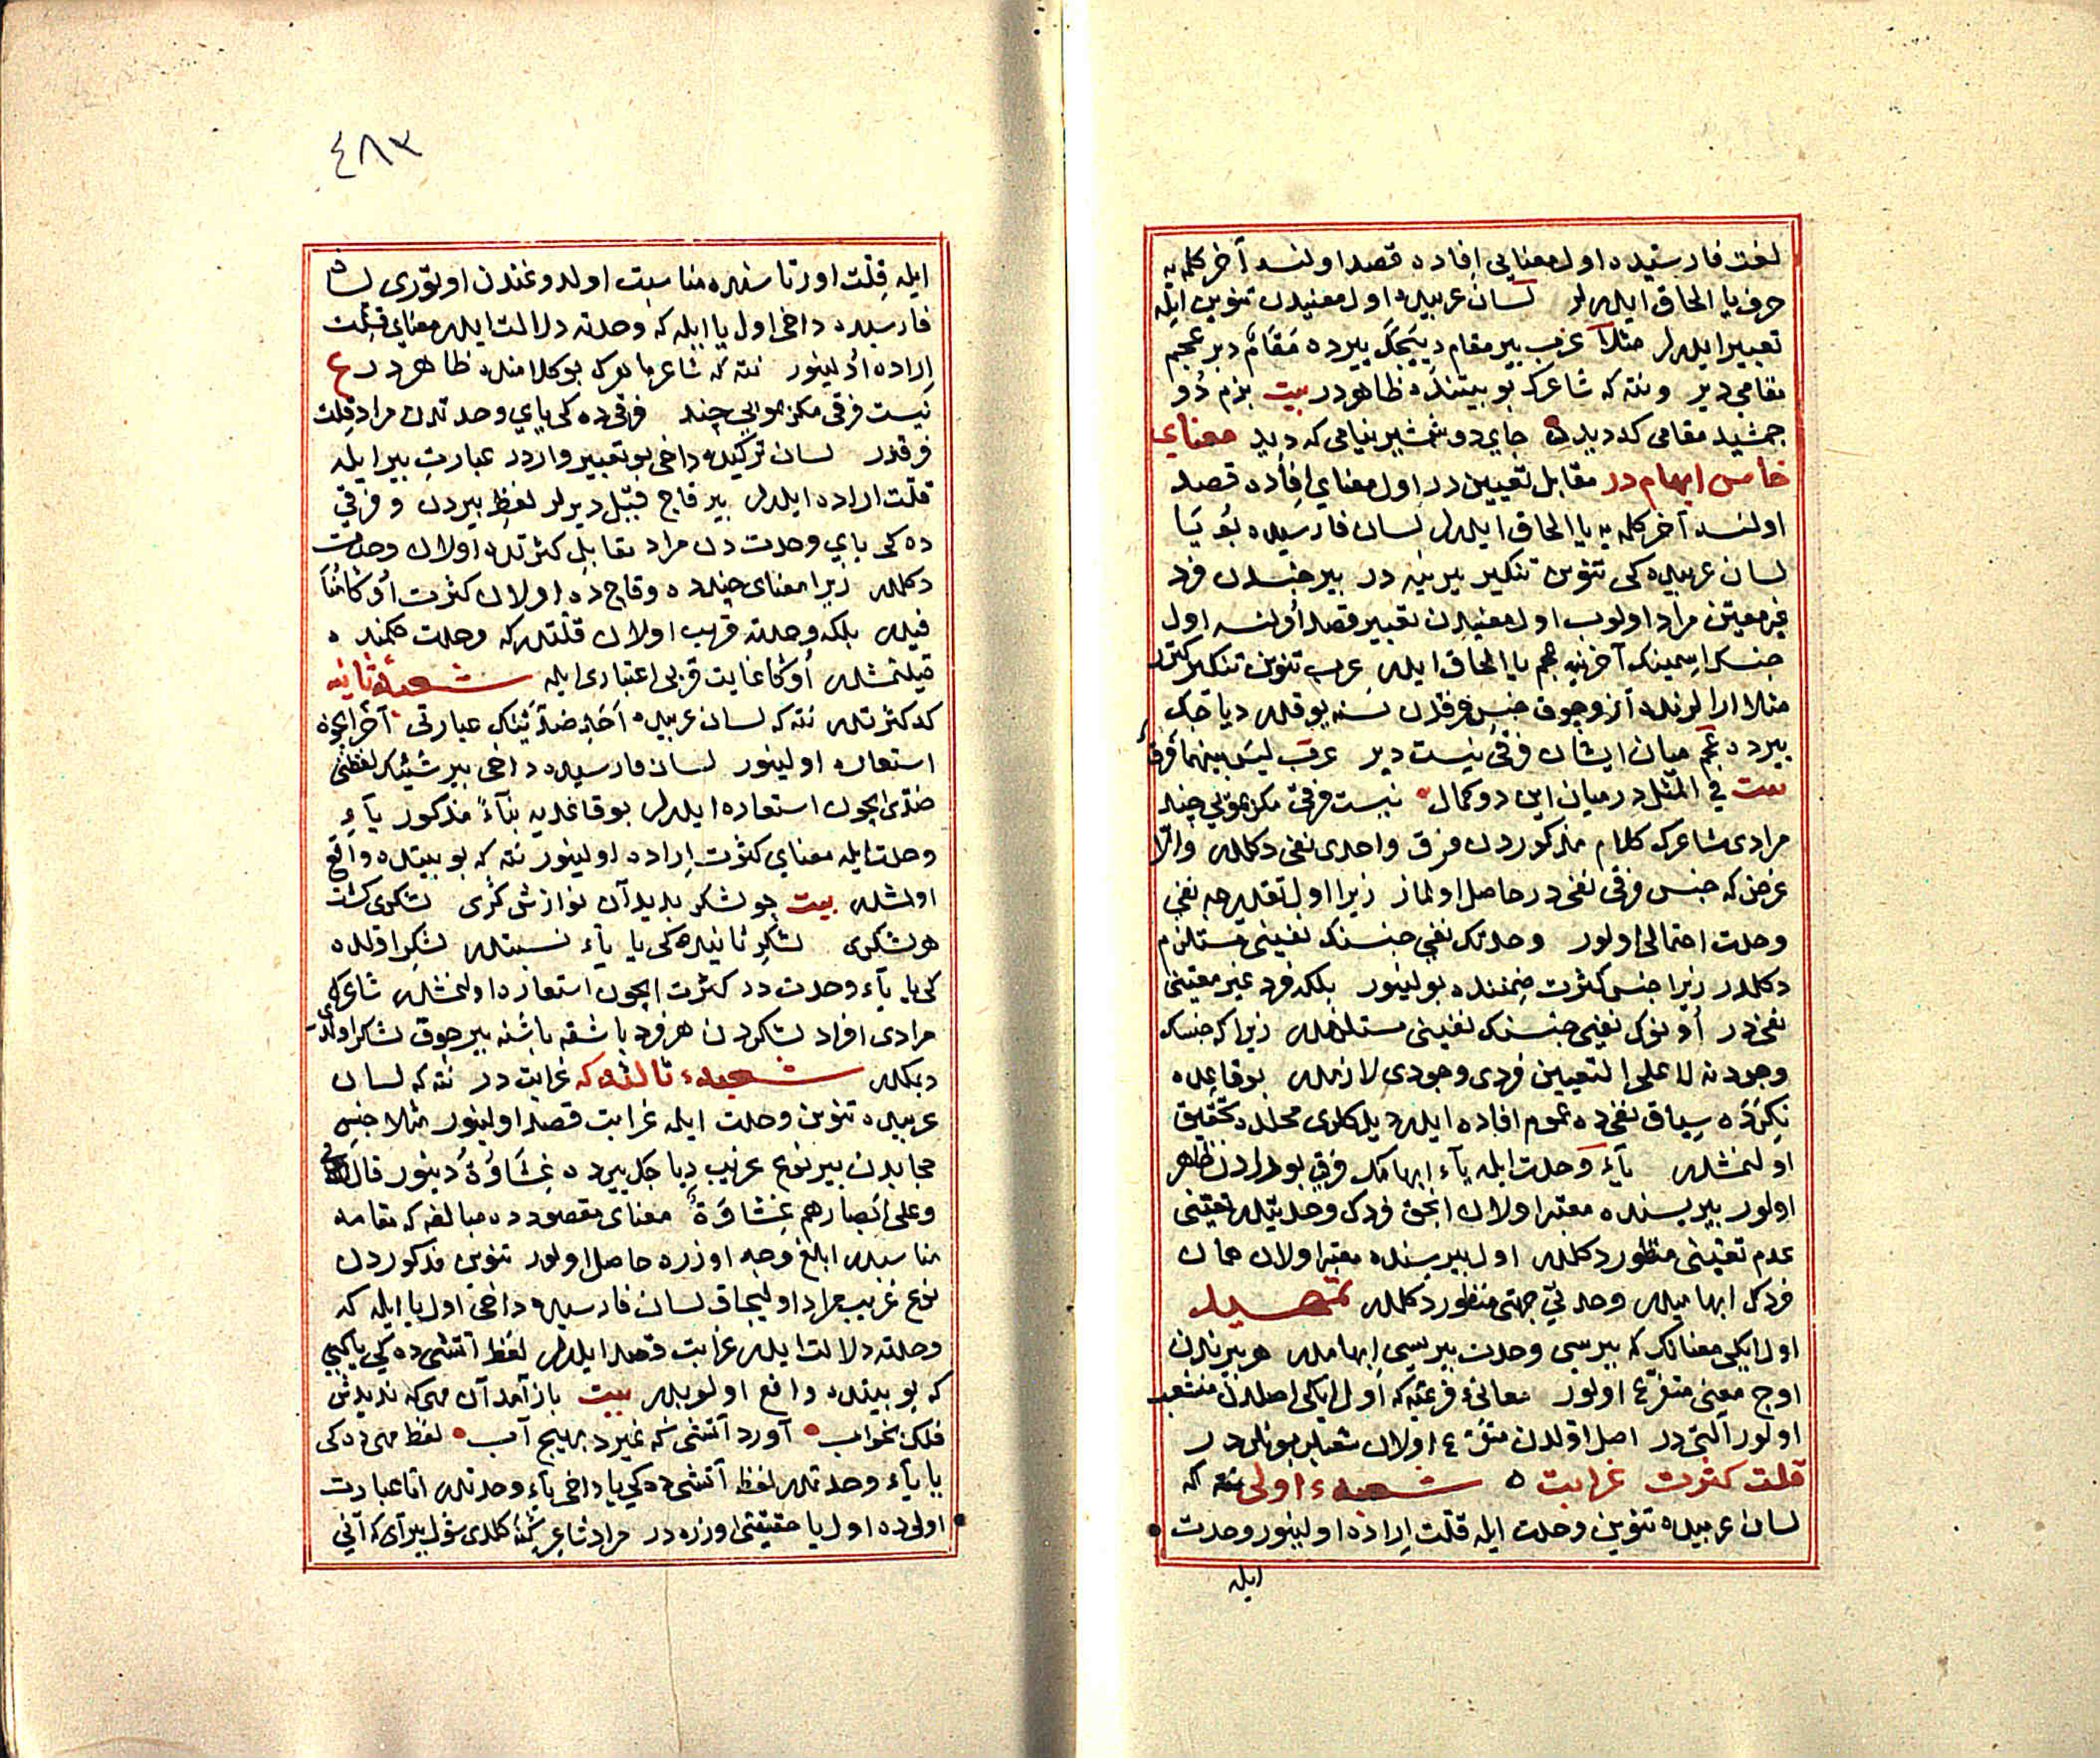 لغت فارسیده اول معنایی افاده قصد اولنسه آخر کلمه یه
حرف یا الحاق ایلرلر لسان عربیده اول معنیدن تنوین ایله
تعبیر ایلرلر مثلا عرب بیر مقام دییجک ییرده مَقَامٌ دیر عجم
مقامی دیر ونته که شاعرک بو بیتنده ظاهردر بیت بزم دو
جمشید مقامی که دیده جای دو شمشیر نیامی که دید معنای
خامس ابهام در مقابل تعییندر اول معنای افاده قصد
اولنسه آخر کلمه یه یا الحاق ایلرلر لسان فارسیده بو یا
لسان عربیده کی تنوین تنکیر یرینه در بیر جنسدن فرد
غیر معین مراد اولوب اول معنیدن تعبیر قصد اولنسه اول
جنسک اسمینک آخرنیه عجم یا الحاق ایلر عرب تنوین تنکیر کتورر
مثلا ارالرنده آز وجوق جنس فرقدن نسنه یوقدر دیاجک
ییرده عجم میان ایشان فرقی نیست دیر عرب لیس بینهما فرق
بیت فی المثل در میان این دو کمال نیست فرقی مکر بمویی چند
مرادی شاعرک کلام مذکوردن فرق واحدی نفی دکلدر والا
غرض که جنس فرقی نفی در حاصل اولماز زیرا اول تقدیرجه نفی
وحدت احتمالی اولور وحدتک نفیی جنسنک نفینی مستلزم
دکلدر زیرا جنس کثرت ضمننده بولینور بلکه فرد غیر معینی
نفی در اونوک نفیی جنسنک نفینی مستلزمدر زیرا که جنسک
وجودنه لا علی التعیین فردی وجودی لازمدر بو قاعده
نکره سیاق نفی ده عموم افاده ایلر دیدکلری محلده تحقیق
اولنمشدر یآء وحدت ایله یآء ابهامک فرقی بورادن ظاهر
اولور بیریسنده معتبر اولان انجق فردک وحدتیدر تعینی
عدم تعینی منظور دکلدر اول بیرسنده معتبر اولان همان
فردک ابهامیدر وحدتی جهتی منظور دکلدر تمهید
اول ایکی معنانک که بیرسی وحدت بیریسی ابهامدر هر بیرندن
اوج معنی متفرع اولور معانئ فرعیه که اول ایکی اصلدن منشعب
اولور التی در اصل اولدن متفرع اولان شعبلر بونلردر
قلت کثرت غرابت شعبهء اولی نته که
لسان عربیده تنوین وحدت ایله قلت اراده اولینور وحدت
ایله
٤٨٣
ایله قلت اورتاسنده مناسبت اولدوغندن اوتوری لسان
فارسیده داخی اول یا ایله که وحدته دلالت ایلر معنای قلت
اراده اولینور نته که شاعر ماهرک بو کلامنده ظاهردر ع
نیست فرقی مکر بمویی چند فرقی ده کی یای وحدتدن مراد قلت
فرقدر لسان ترکیده داخی بو تعبیر واردر عبارت بیر ایله
قلت اراده ایلرلر بیر قاج قبیل دیرلر لفظ بیردن و فرقی
ده کی یای وحدت دن مراد مقابل کثرتده اولان وحدت
دکلدر زیرا معنای چندده و قاج ده اولان کثرت اوکا منا
فیدر بلکه وحدته قریب اولان قلتدر که وحدت حکمنده
قیلنمشدر اوکا غایت قربی اعتباری ایله شعبهٔ ثانیه
که کثرتدر نته که لسان عربیده اَحَد ضدَّیْنک عبارتی آخر ایچون
استعاره اولینور لسان فارسیده داخی بیر شیئک لفظنی
ضدی ایچون استعاره ایلرلر بو قاعدیه بنآءً مذکور یآء
وحدت ایله معنای کثرت اراده اولینور نته که بو بیتده واقع
اولمشدر بیت جو لشکر بدید آن نوازش کری لشکری کشت
هر لشکری لشکر ثانیده کی یا یآء نسبتدر لشکر اولده
کی یا یآء وحدت در کثرت ایچون استعاره اولنمشدر شاعرک
مرادی افراد لشکردن هر فرد باشقه باشنه بیر جوق لشکر اولدی
دیمکدر شعبهء ثالثه که غرابت در نته که لسان
عربیده تنوین وحدت ایله غرابت قصد اولینور مثلا جنس
حجابدن بیر نوع غریب دیاجک ییرده غِشَاوَةٌ دینور قال
وعلی ابصارهم غِشَاوَةٌ معنای مقصودده مبالغه که مقامه
مناسبدر ابلغ وجه اوزره حاصل اولور تنوین مذکوردن
نوع غریب مراد اولیجاق لسان فارسیده داخی اول یا ایله که
وحدته دلالت ایلر غرابت قصد ایلرلر لفظ آتشی ده کی یا کیبی
که بو بیتده واقع اولوبدر بیت باز آمد آن مهی که ندیدش
فلک بخواب آورد آتشی که نمیرد بهیچ آب لفظ مهی ده کی
یا یآء وحدتدر لفظ آتشی ده کی یا داخی یآء وحدتدر اما عبارت
اولی ده اول یا حقیقتی اوزره در مراد شاعر ینه کلدی شول بیر آی که آنی